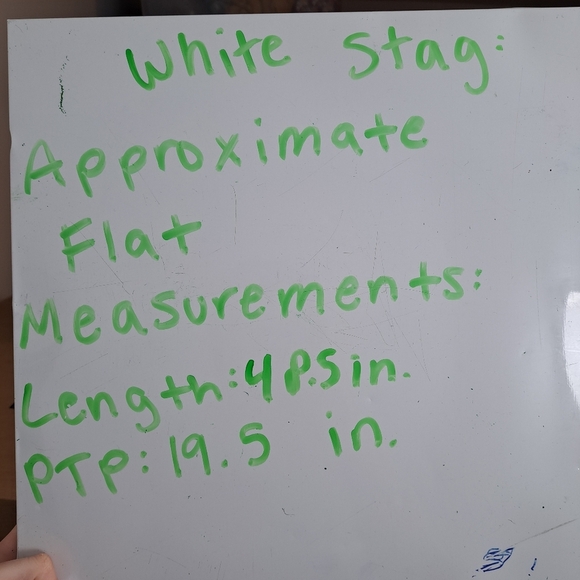 White Stag:
Approximate
Flat
Measurements:
Length: 48.5 in.
PTP: 19.5 in.